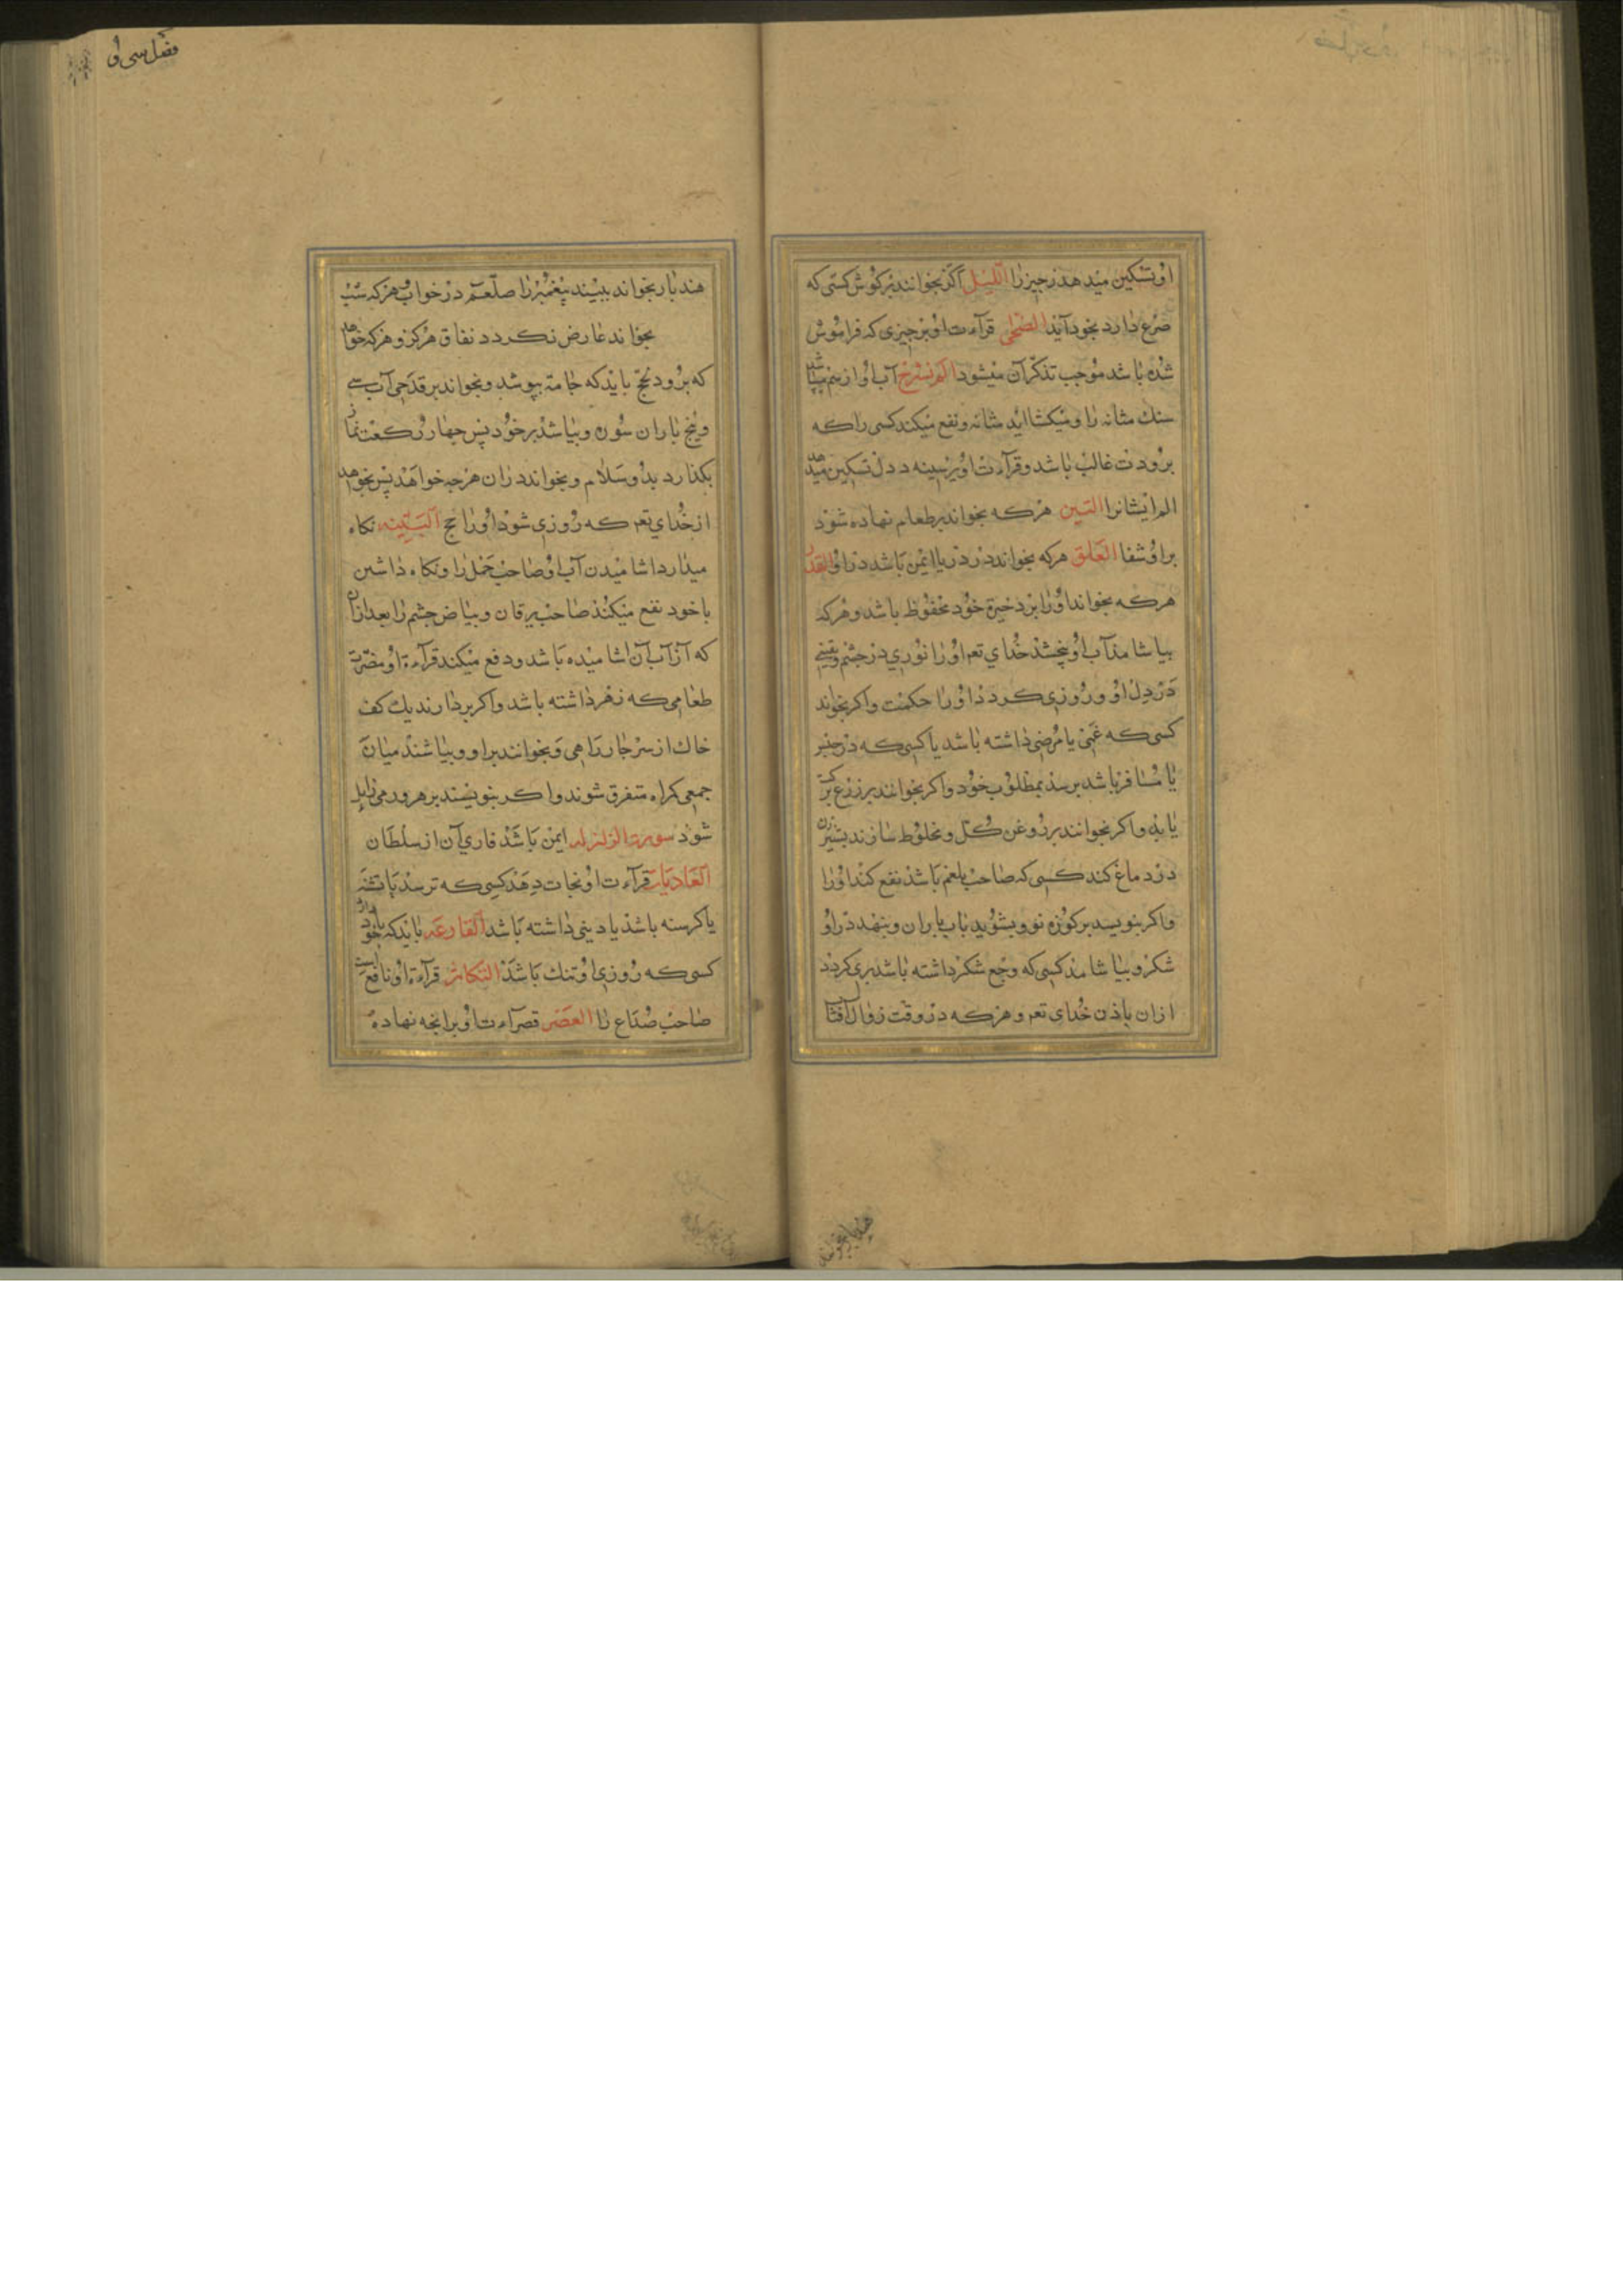 او تسکین میدهد زجیر را اللیل اکر بخوانند بر کوش کسی که
صرع دارد بخود آید الضحی قرآءت او بر چیزی که فراموش
شده باشد موجب تذکر آن میشود الم نشرح آب او از هم میپاشد
سنك مثانه را و میکشاید مثانه و نفع میکند کسی را که
برودت غالب باشد و قرآءت او بر سینه و دل تسکین میدهد
الم ایشانرا التین هرکه بخواند بر طعام نهاده شود
براو شفا العلق هرکه بخواند در دریا ایمن باشد در او القدر
هرکه بخواند او را بر ذخیرۀ خود محفوظ باشد و هرکه
بیاشامد آب او ببخشد خدای تعه او را نوری در چشم و یقینی
در دل او و روزی کردد او را حکمت و اکر بخواند
کسی که غمی یا مرضی داشته باشد یا کسی که در حبس
یا مسافر باشد برسد بمطلوب خود و اکر بخوانند بر زرع برکت
یابد و اکر بخوانند بر روغن کل و مخلوط سازند
درد ماغ کند کسی که صاحب بلغم باشد نفع کند او را
و اکر بنویسد بر کوزه نو و بشوید بآب باران و بنهد در او
شکر و بیاشامد کسی که وجع شکر داشته باشد بری کردد
ازان باذن خدای تعه و هرکه در وقت زوال آفتاب
فضل سی او
صد بار بخواند ببیند پیغمبر را صلعم در خواب و هرکه شب
بخواند عارض نکردد نفاق هرکز و هرکه خواهد
که برود بحج باید که جامۀ بپوشد و بخواند بر قدحی آب سی
و پنج بار ان سوره و بپاشد بر خود پس چهار رکعت نماز
بکذارد بدو سلام و بخواند دران هرچه خواهد پس بخواهد
از خدای تعه که روزی شود او را حج البینه نکاه
میدارد اشامیدن آب او صاحب حمل را و نکاه داشتن
با خود نفع میکند صاحب یرقان و بیاض چشم را بعد ازان
که از آب آن اشامیده باشد و دفع میکند قرآءة او مضرت
طعامی که زهر داشته باشد و اکر بردارند یك کف
خاك از سر چار راهی و بخوانند براو و بپاشند میان
جمعی کراه متفرق شوند و اکر بنویسند بر هر ورمی زایل
شود سورت الزلزله ایمن باشد قاری آن از سلطان
العادیات قرآءت او نجات دهد کسی که ترسد یا تشنه
یا کرسنه باشد یا دینی داشته باشد القارعه باید که با خود دارد
کسی که روزی او تنك باشد التکاثر قرآءة او نافع است
صاحب صداع را العصر قرآءت او بر انچه نهاده